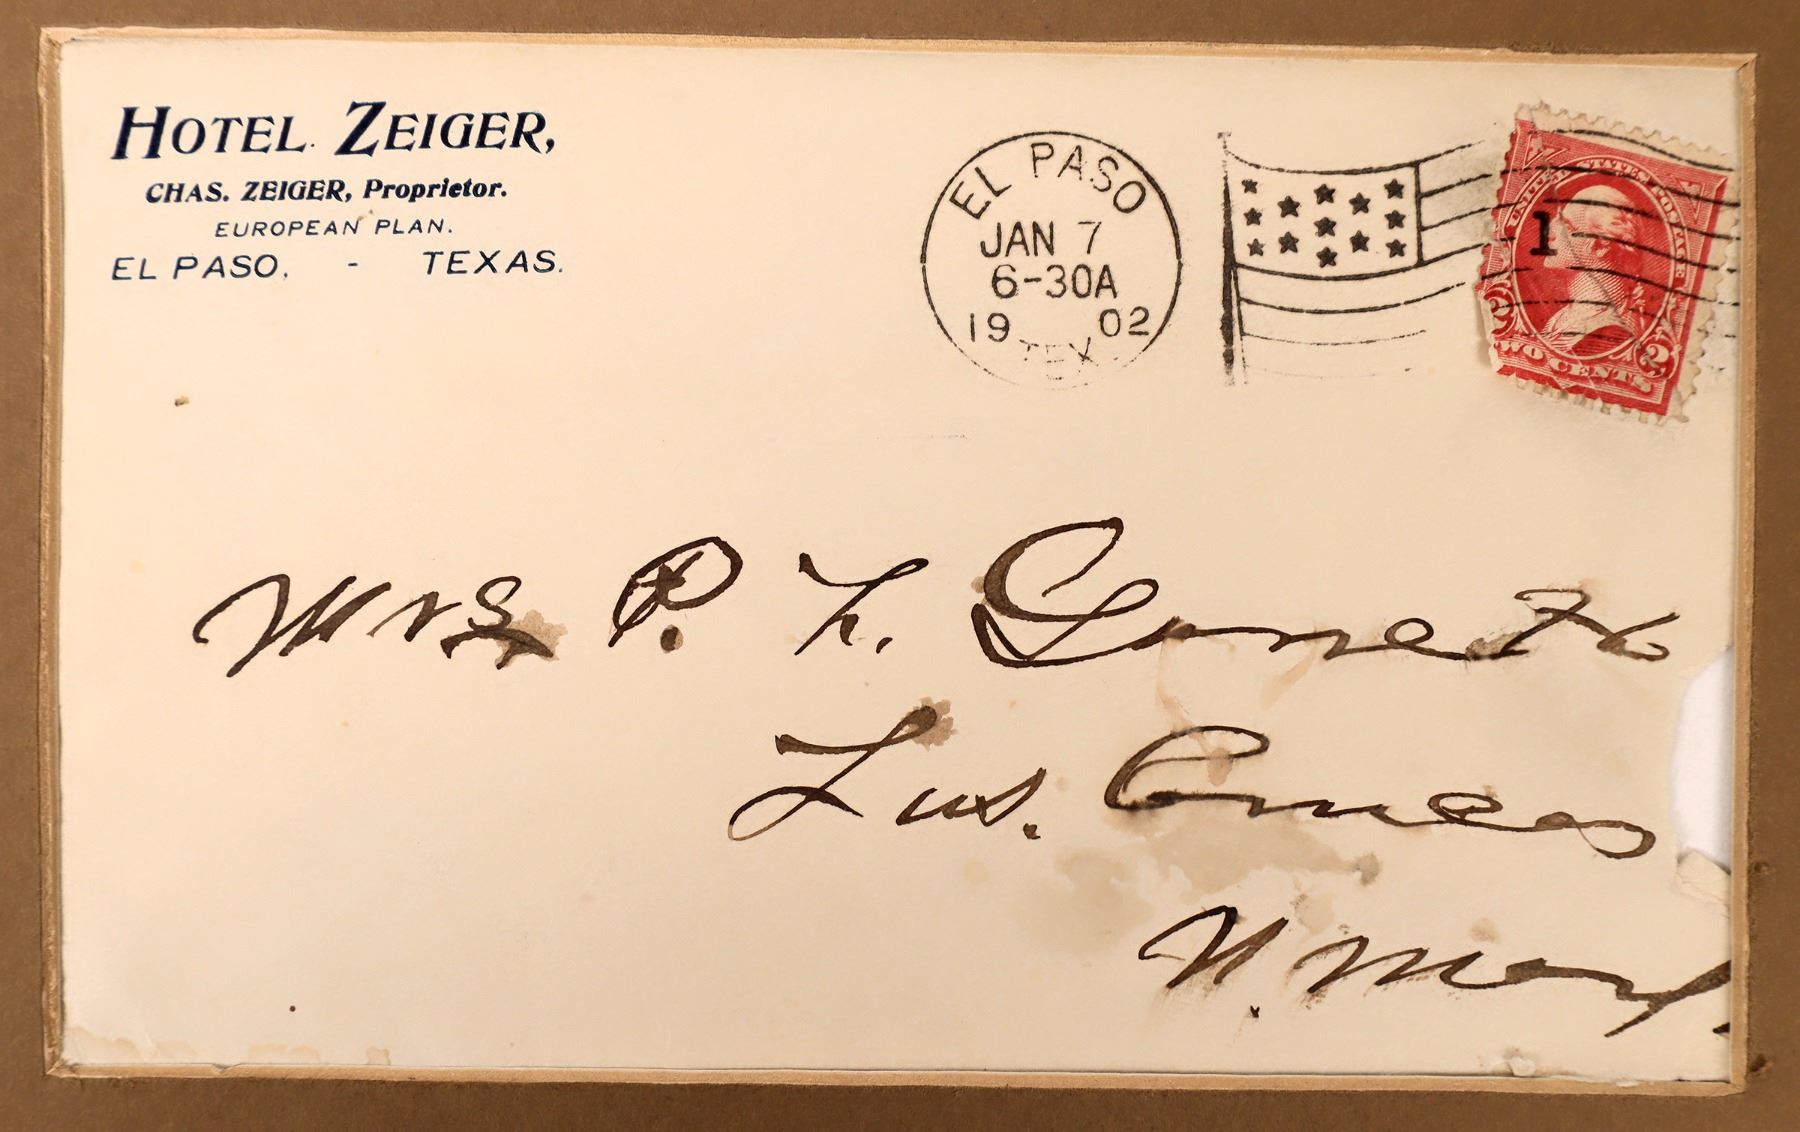 HOTEL ZEIGER,
CHAS. ZEIGER, Proprietor.
EUROPEAN PLAN.
EL PASO, - TEXAS.
EL PASO
JAN 7
6-30A
19 02
TEX.
1
UNITED STATES POSTAGE
2 2
TWO CENTS
Mrs P. F. Garrett
Las Cruces
N. Mex